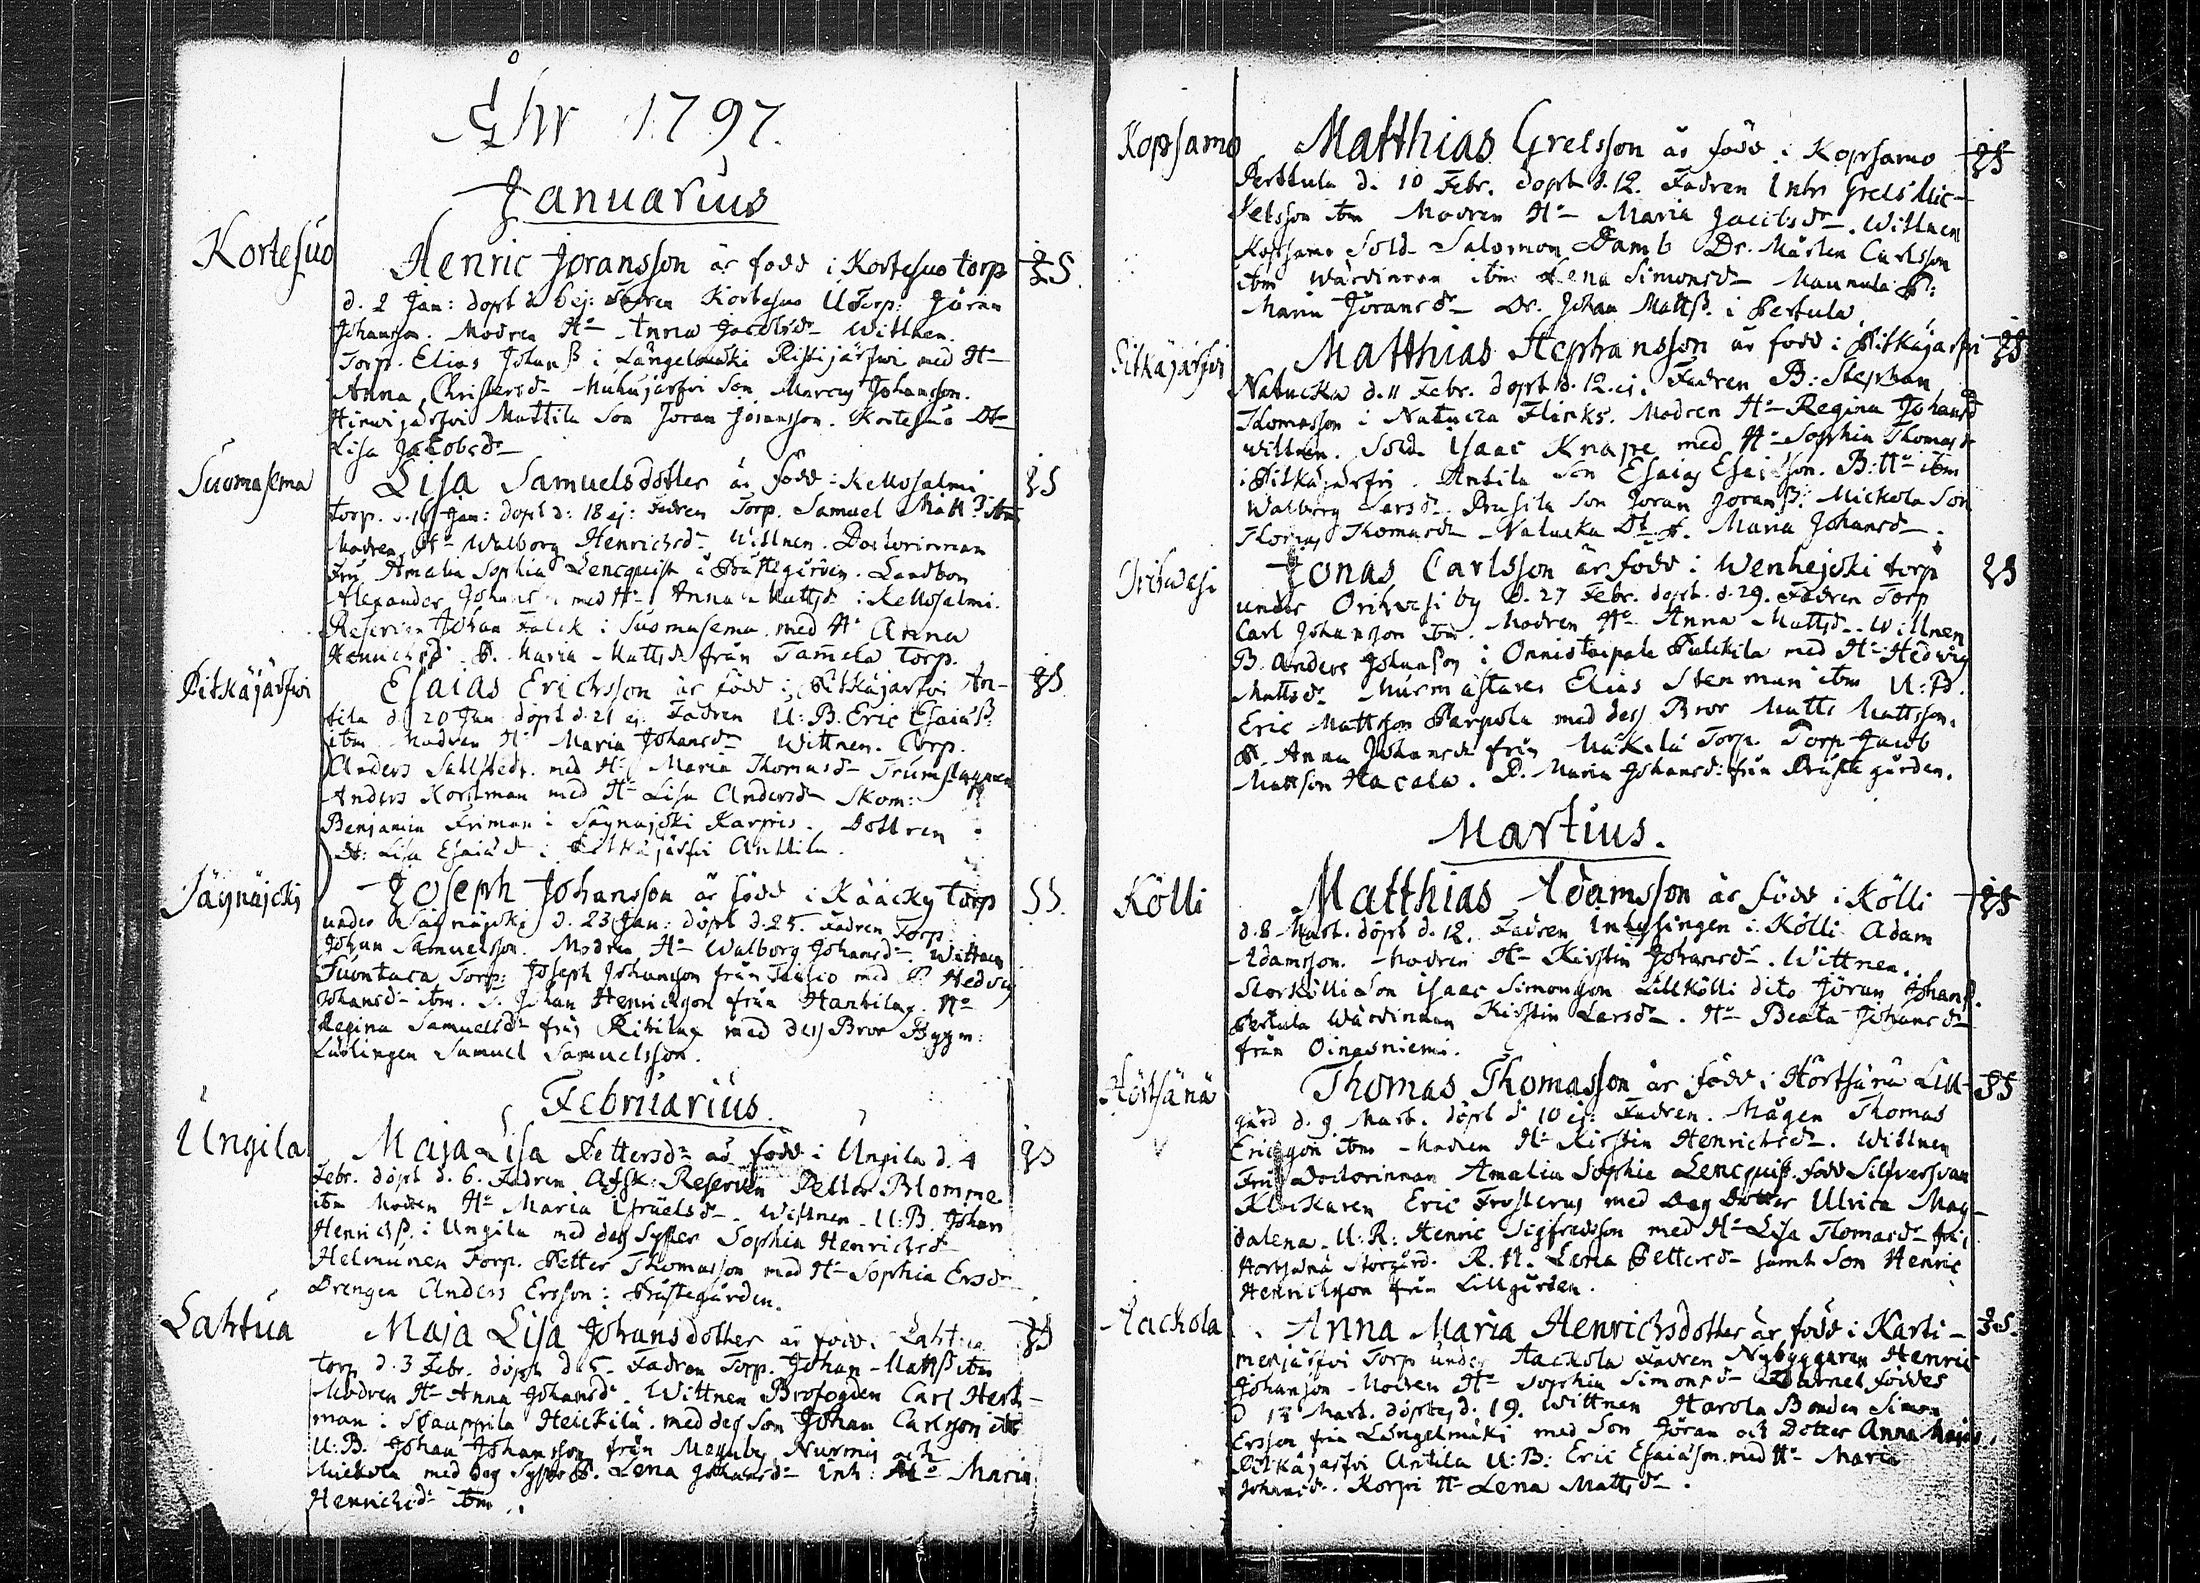 Åhr 1797.
Januarius
Kortesuo
Henric Jöransson är född i Kortesuo torp
d. 2 Jan: döpt d. 6 ej: Fadren Kortesuo U Torp: Jöran
Johansson. Modren H. Anna Jacobsdr Wittnen.
Torp. Elias Johanß i Längelmäki Ristijärfwi med H.
Anna Christersdr Muhujärfvi Son Marcus Johansson.
Hirwijärfvi Mattila Son Jöran Jöransson. Kortesuo Dtr
Lisa Jacobsdr
Suomasema
Lisa Samuelsdotter är född i Kellosalmi
torp. d. 16 Jan: döpt d: 18 ej: Fadren Torp. Samuel Matt: itm
Modren H. Walborg Henrichsdr Wittnen. Doctorinnan
Fru Amalia Sophia Lencquist å Prästegården. Landbon
Alexander Johans med H. Anna Mattsdr i Kellosalmi.
Reserven Johan Falck i Suomasema med H. Anna
Henrichsdr P. Maria Mattsdr från Tam̄ela Torp.
Pitkäjärfwi
Esaias Erichsson är född i Pitkäjärfwi An-
tila d. 20 Jan döpt d. 21 ej. Fadren U:B. Eric Esaiaß
itm Modren H. Maria Johansdr Wittnen. Torp.
Anders Sällstedt med H: Maria Thomasdr Trumslagaren
Anders Korstman med H. Lisa Andersdr Skom:
Benjamin Friman i Säynäjoki Karpris. Dottren
P: Lisa Esaiædr i Pitkäjärfvi Anttila.
Säynäjoki
Joseph Johansson är född i Kääcky torp
under Säynäjoki d. 23 Jan: döpt d. 25. Fadren Torp
Johan Samuelsson. Modren H. Walborg Johansdr. Wittnen
Suontaca Torp: Joseph Johansson från med P. Hedvig
Johansdr itm. S. Johan Henrichsson från H.
Regina Samuelsdr från med dess Bror Byggn:
Lärlingen Samuel Samuelsson.
Februarius.
Ungila
Maja Lisa Pettersdr är född i Ungila d. 4
Febr. döpt d. 6. Fadren Afsk: Reserven Petter Blomme
itm Modren H. Maria Israelsdr. Wittnen U:B. Johan
Henrichß. i Ungila med dess Syster Sophia Henrichsdr
Helmünen Torp. Petter Thomasson med H. Sophia Ersdr
Drengen Anders Ersson i Prästegården.
Lahtua
Maja Lisa Johansdotter är född i Lahtua
torp d. 3 Febr. döpt d. 5. Fadren Torp. Johan Mattß itm
Modren H. Anna Johansdr. Wittnen Brofogden Carl Hert-
man i Heickilä med dess Son Johan Carlsson itm
U:B. Johan Johansson från Nurmis och
Mickola med dess Syster P. Lena Johansdr Inh: H. Maria
Henrichsdr itm.
Kopsamo
Matthias Grelsson är född i Kopsamo
Perttula d. 10 Febr. döpt d. 12. Fadren Inhs Grels Mic-
kelsson itm Modren H. Maria Jacobsdr. Wittnen
Kopsamo Sold. Salomon Damb Dr. Mårten Carlsson
itm Wärdinnan itm Lena Simonsdr Maunula P:
Maria Jöransdr Dr. Johan Mattß. i Pertula
Pitkäjärfvi
Matthias Stephansson är född i Pitkäjärfvi
Natucka d. 11 Febr. döpt d. 12. ej. Fadren B: Stephan
Thomasson i Natucka Flinks. Modren H. Regina Johansdr
Wittnen. Sold. Isaac Knape med H. Sophia Thomasdr
i Pitkäjärfvi. Antila Son Esaias Esaiæson. B: H. itm
Walborg Larsdr. Prusila Son Jöran Joranß. Mickola Son
Thomas Thomasdr Natucka Dr. P. Maria Johansdr.
Orihwesi
Jonas Carlsson är född i Wenhejoki torp
under Orihwesi by d. 27 Febr. döpt d. 29. Fadren Torp
Carl Johansson itm. Modren H. Anna Mattsdr. Wittnen
B. Anders Johansson i Onnistaipale Pulckila med H. Hedwig
Mattsdr. Murmästaren Elias Stenman itm U:B.
Eric Mattsson Parpola med dess Bror Matts Mattsson.
P. Anna Johansdr från Mäkelä Torp. Torp Jacob
Mattson Hacala. P. Maria Johansd: från Prästegården.
Martius.
Kölli
Matthias Adamsson är född i Kölli
d. 8 Mart. döpt d. 12. Fadren Inhysingen i Kölli Adam
Adamsson. Modren H. Kirstin Johansdr. Wittnen.
Storkölli Son Isaac Simonsson Lillkölli dito Jöran Johanß.
Pertula Wärdinnan Kirstin Larsdr. H. Beata Johansdr
från Oinasniemi.
Hörtsänä
Thomas Thomasson är född i Hörtsänä Lill-
gård d. 9 Mart. döpt d. 10 ej: Fadren. Mågen Thomas
Ericsson itm Modren H. Kirstin Henrichsdr. Wittnen
Fru Doctorinnan Amalia Sophia Lencquist född Silfversvan
Klockaren Eric Frosterus med Dess Dotter Ulrica Mag-
dalena. U:R: Henric Sigfredsson med H. Lisa Thomasdr från
Hörtsänä Storgård. R. H. Lena Pettersdr samt Son Henric
Henrichsson från Lillgården.
Aackola
Anna Maria Henrichsdotter är född i Karti-
menjärfvi Torp under Aackola Fadren Nybyggaren Henric
Johansson Modren H. Sophia Simonsdr Barnet föddes
d Mart. döptes d. 19. Wittnen Harola Bonden Simon
Ersson från Längelmäki med Son Jöran och Dotter Anna Maria.
Pitkäjärfvi Antila U:B: Eric Esaiæson med H. Maria
Johansdr. Korpi H. Lena Mattsdr.